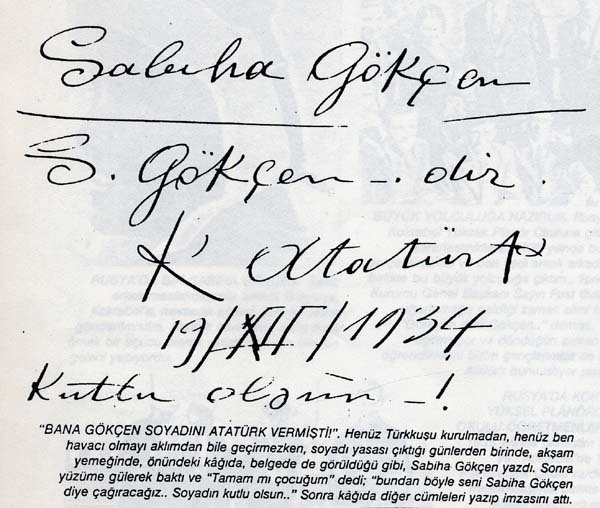 Sabiha Gökçen
S. Gökçen -. dir.
K Atatürk
19/XII/1934
Kutlu olsun -!
"BANA GÖKÇEN SOYADINI ATATÜRK VERMİŞTİ!". Henüz Türkkuşu kurulmadan, henüz ben
havacı olmayı aklımdan bile geçirmezken, soyadı yasası çıktığı günlerden birinde, akşam
yemeğinde, önündeki kâğıda, belgede de görüldüğü gibi, Sabiha Gökçen yazdı. Sonra
yüzüme gülerek baktı ve "Tamam mı çocuğum" dedi; "bundan böyle seni Sabiha Gökçen
diye çağıracağız.. Soyadın kutlu olsun.." Sonra kâğıda diğer cümleleri yazıp imzasını attı.